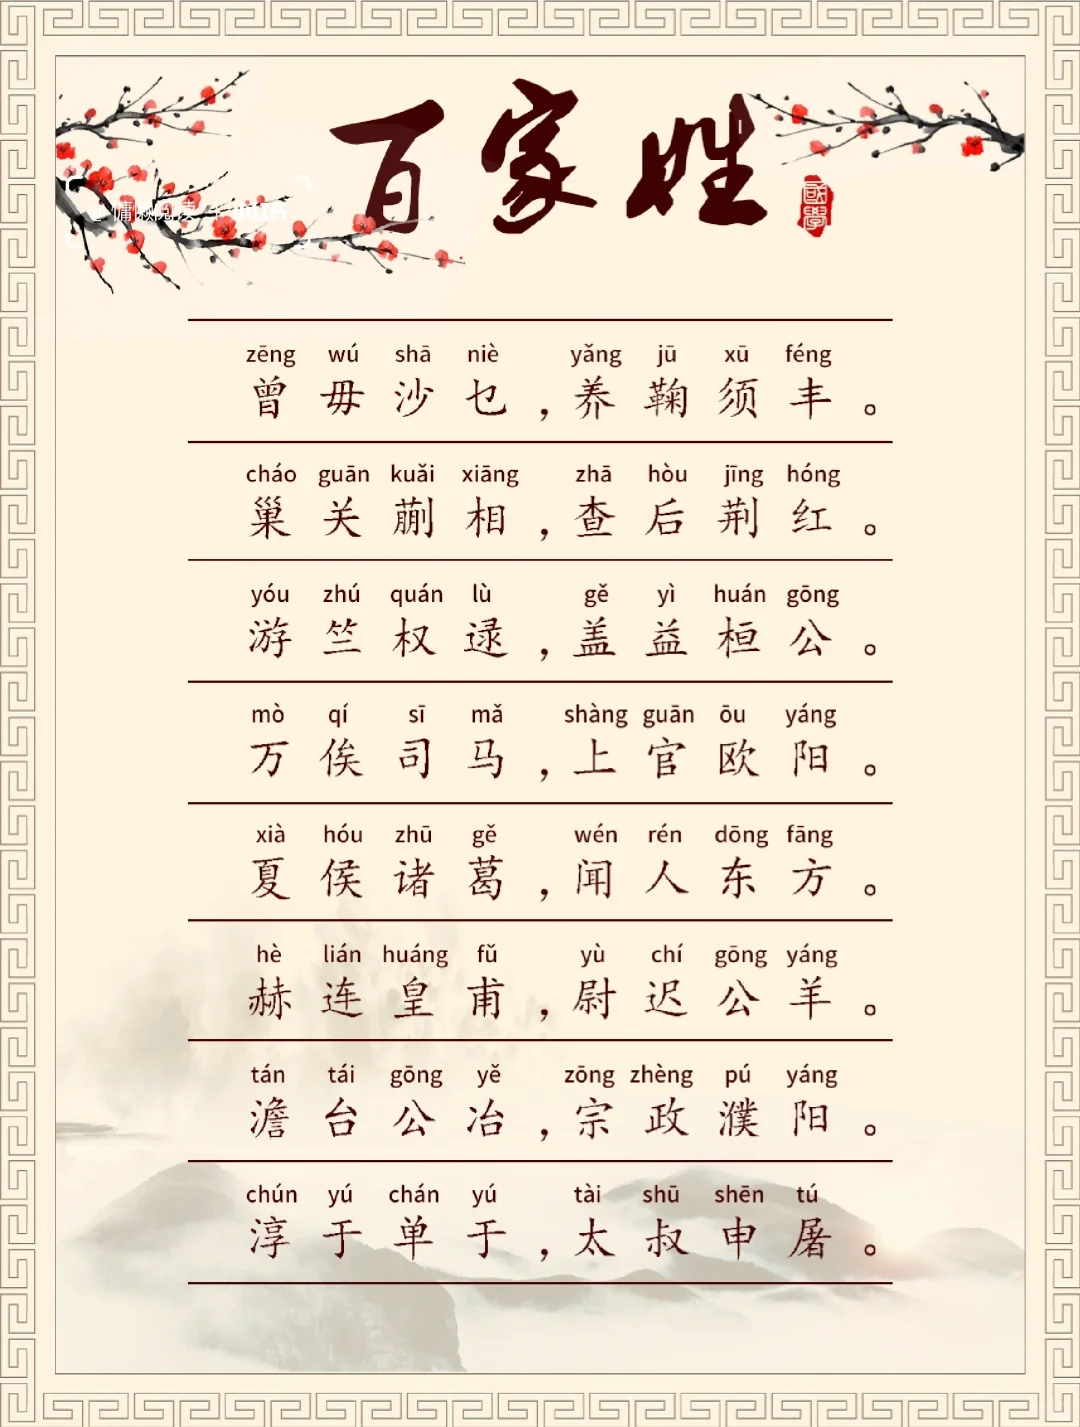 百家姓
國學
慵懒阅读
zēng wú shā niè yǎng jū xū féng
曾毋沙乜，养鞠须丰。
cháo guān kuǎi xiāng zhā hòu jīng hóng
巢关蒯相，查后荆红。
yóu zhú quán lù gě yì huán gōng
游竺权逯，盖益桓公。
mò qí sī mǎ shàng guān ōu yáng
万俟司马，上官欧阳。
xià hóu zhū gě wén rén dōng fāng
夏侯诸葛，闻人东方。
hè lián huáng fǔ yù chí gōng yáng
赫连皇甫，尉迟公羊。
tán tái gōng yě zōng zhèng pú yáng
澹台公冶，宗政濮阳。
chún yú chán yú tài shū shēn tú
淳于单于，太叔申屠。